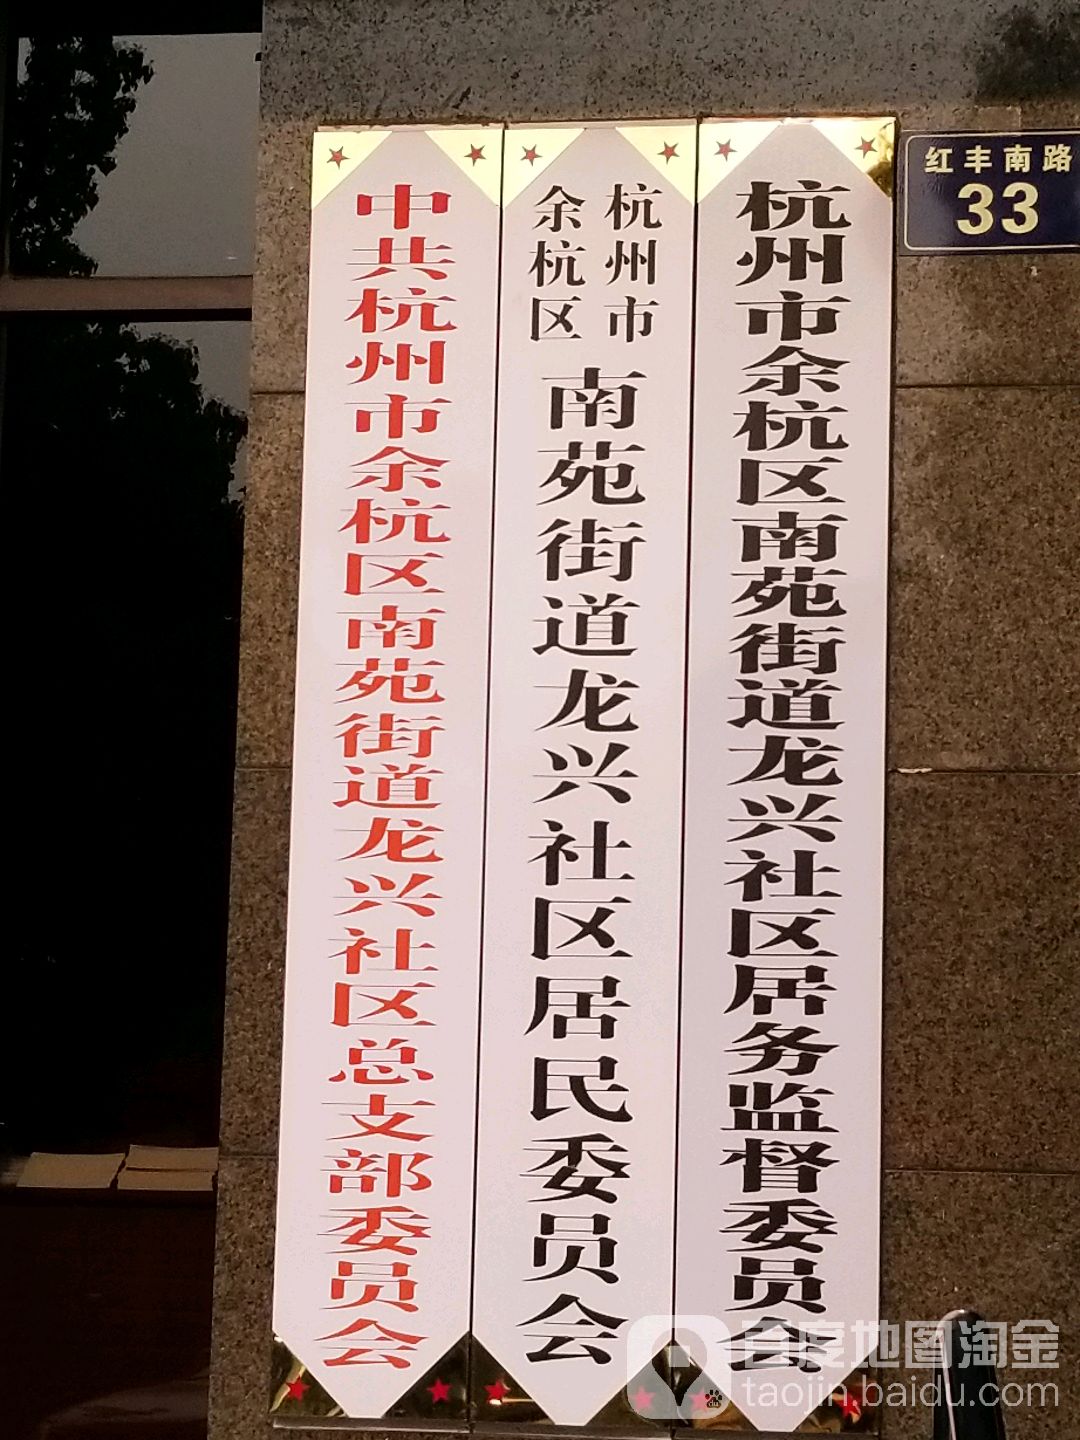 中共杭州市余杭区南苑街道龙兴社区总支部委员会
杭州市
余杭区
南苑街道龙兴社区居民委员会
杭州市余杭区南苑街道龙兴社区居务监督委员会
红丰南路
33
百度地图淘金
taojin.baidu.com